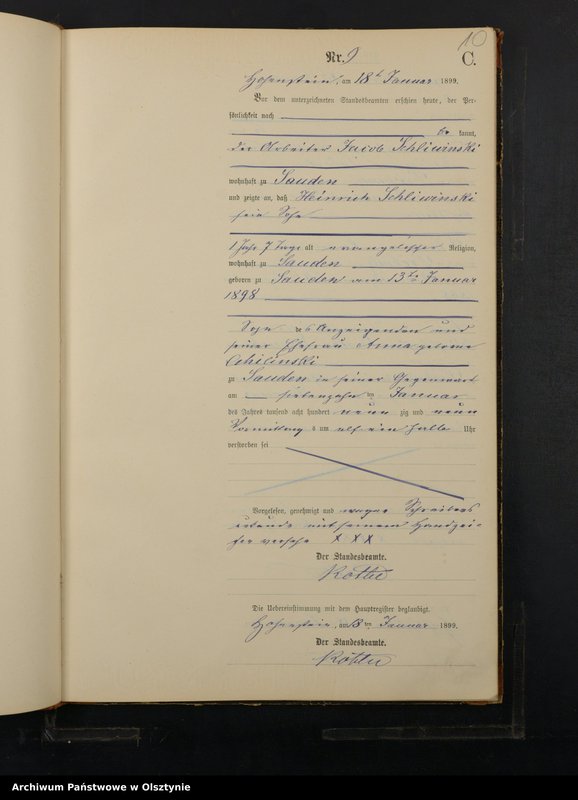 10
Nr. 9
C.
Hohenstein, am 18t Januar 1899.
Vor dem unterzeichneten Standesbeamten erschien heute, der Per-
sönlichkeit nach
be kannt,
der Arbeiter Jacob Schliwinski
wohnhaft zu Sauden
und zeigte an, daß Heinrich Schliwinski
sein Sohn
1 Jahr 7 Tage alt evangelischer Religion,
wohnhaft zu Sauden
geboren zu Sauden am 13ten Januar
1898
Sohn des Anzeigenden und
seiner Ehefrau Anna geborene
zu Sauden in seiner Gegenwart
am siebenzehn ten Januar
des Jahres tausend acht hundert neun zig und neun
Vormittags um elf ein halb Uhr
verstorben sei
Vorgelesen, genehmigt und wegen Schreibens
unkunde mit seinem Handzei-
chen versehn X X X
Der Standesbeamte.
Die Uebereinstimmung mit dem Hauptregister beglaubigt.
Hohenstein, am 18 ten Januar 1899.
Der Standesbeamte.
Archiwum Państwowe w Olsztynie